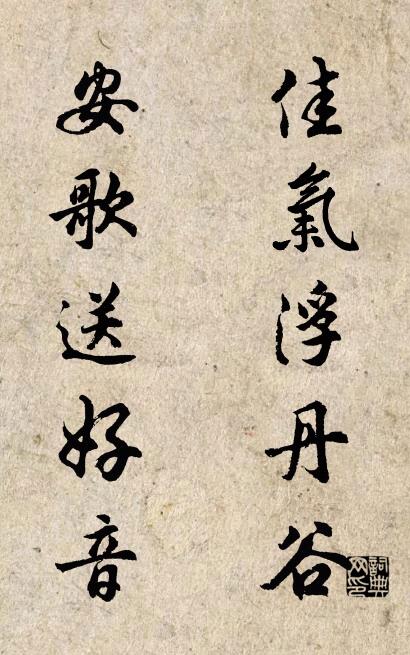 佳氣浮丹谷
安歌送好音
詞典网印